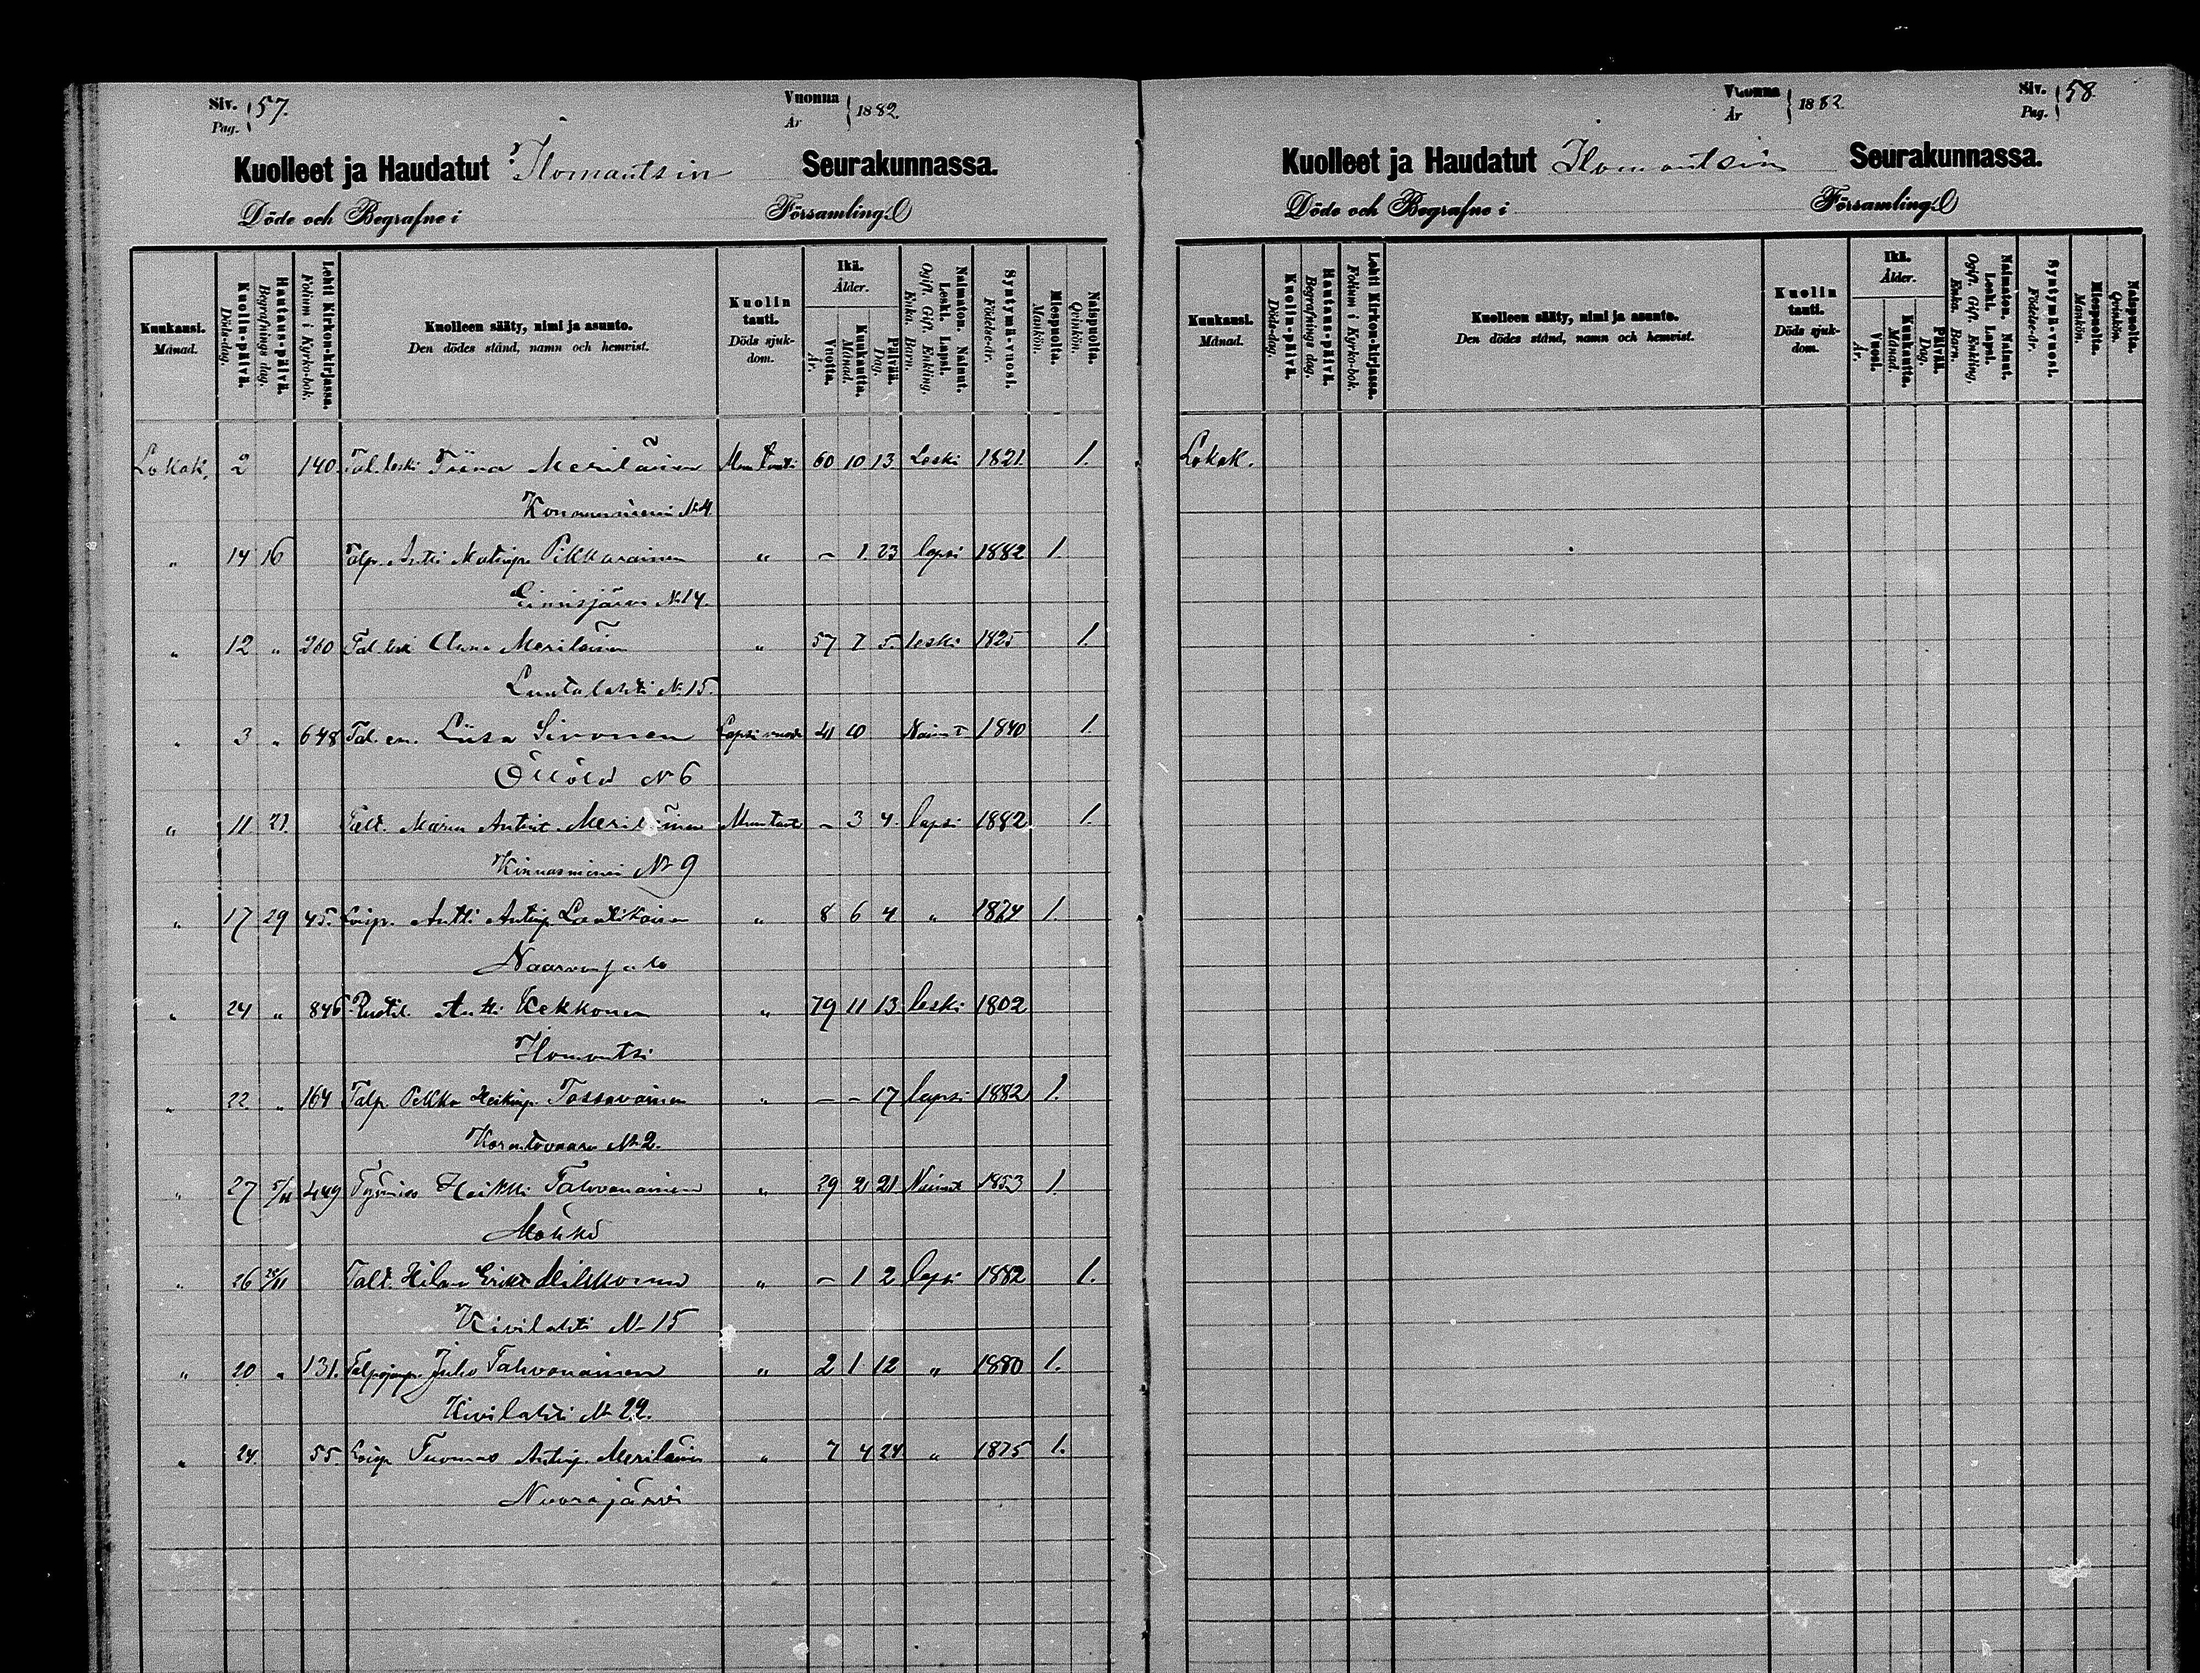 Siv. Pag. 57.
Vuonna År 1882.
Kuolleet ja Haudatut Ilomantsin Seurakunnassa.
Döde och Begrafne i Församling
Kuukausi. Månad.
Kuolin-päivä. Döds-dag.
Hautaus-päivä. Begrafnings dag.
Lehti Kirkon-kirjassa. Folium i Kyrko-bok.
Kuolleen sääty, nimi ja asunto.
Den dödes stånd, namn och hemvist.
Kuolin tauti. Döds sjukdom.
Ikä. Ålder.
Vuotta. År.
Kuukautta. Månad.
Päivää. Dag.
Naimaton. Nainut. Leski. Lapsi.
Ogift. Gift. Enkling. Enka. Barn.
Syntymä-vuosi. Födelse-år.
Miespuolta. Mankön.
Naispuolta. Qvinkön.
Lokak. 2 140. Tal. leski Tiina Meriläinen 60 10 13 Leski 1821 1.
№ 4.
„ 14 16 Talp. Antti Matinp. Pikkarainen „ – 1 23 lapsi 1882 1.
№ 14.
„ 12 „ 260 Tal. leski Anna Meriläinen „ 57 7 5. leski 1825 1.
Luutalahti № 15.
„ 3 „ 648 Tal. em. Liisa Sivonen Lapsi vuode 41 10 Nainut 1840 1.
Öllölä № 6
„ 11 21. Talt. Maria Antint. Meriläinen – 3 4. lapsi 1882 1.
Kinnasniemi № 9
„ 17 29 45. Loisp. Antti Antinp. „ 8 6 4 „ 1874 1.
„ 24 „ 846 Antti Kekkonen „ 79 11 13 leski 1802
Ilomantsi
„ 22 „ 164 Talp. Pekka Heikinp. Tossavainen „ – – 17 lapsi 1882 1.
№ 2.
„ 27 5/11 449 Työmies Heikki Tahvanainen „ 29 2 21 Nainut 1853 1.
Möhkö
„ 26 Talt. Hilma Erikt. Mikkonen „ – 1 2 lapsi 1882 1.
Kivilahti № 15
„ 20 „ 131. Juho Tahvanainen „ 2 1 12 „ 1880 1.
Kivilahti № 22.
„ 24. 55. Loisp. Tuomas Antinp. Meriläinen „ 7 4 24 „ 1875 1.
Nuorajärvi
Vuonna År 1882.
Siv. Pag. 58.
Kuolleet ja Haudatut Ilomantsin Seurakunnassa.
Döde och Begrafne i Församling
Kuukausi. Månad.
Kuolin-päivä. Döds-dag.
Hautaus-päivä. Begrafnings dag.
Lehti Kirkon-kirjassa. Folium i Kyrko-bok.
Kuolleen sääty, nimi ja asunto.
Den dödes stånd, namn och hemvist.
Kuolin tauti. Döds sjukdom.
Ikä. Ålder.
Vuosi. År.
Kuukautta. Månad.
Päivää. Dag.
Naimaton. Nainut. Leski. Lapsi.
Ogift. Gift. Enkling. Enka. Barn.
Syntymä-vuosi. Födelse-år.
Miespuolta. Mankön.
Naispuolta. Qvinkön.
Lokak.